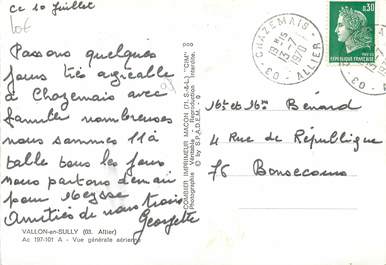 Ce 10 Juillet
Lot
Passons quelques
jours très agréable
à Chazemais avec
famille nombreuses
nous sommes 11 à
table tous les jours
nous partons demain
pour Meysse
Amitiés de nous trois
Georgette
VALLON-en-SULLY (03. Allier)
Ac 197-101 A - Vue générale aérienne
COMBIER IMPRIMEUR MACON (71. S.-&-L.) "CIM"
Photographie Véritable - Reproduction Interdite
© by S.P.A.D.E.M. - 9
CHAZEMAIS
13-7
1970
03 - ALLIER
0,30
Mr et Mme Bénard
4 Rue de République
76 Bonsecours